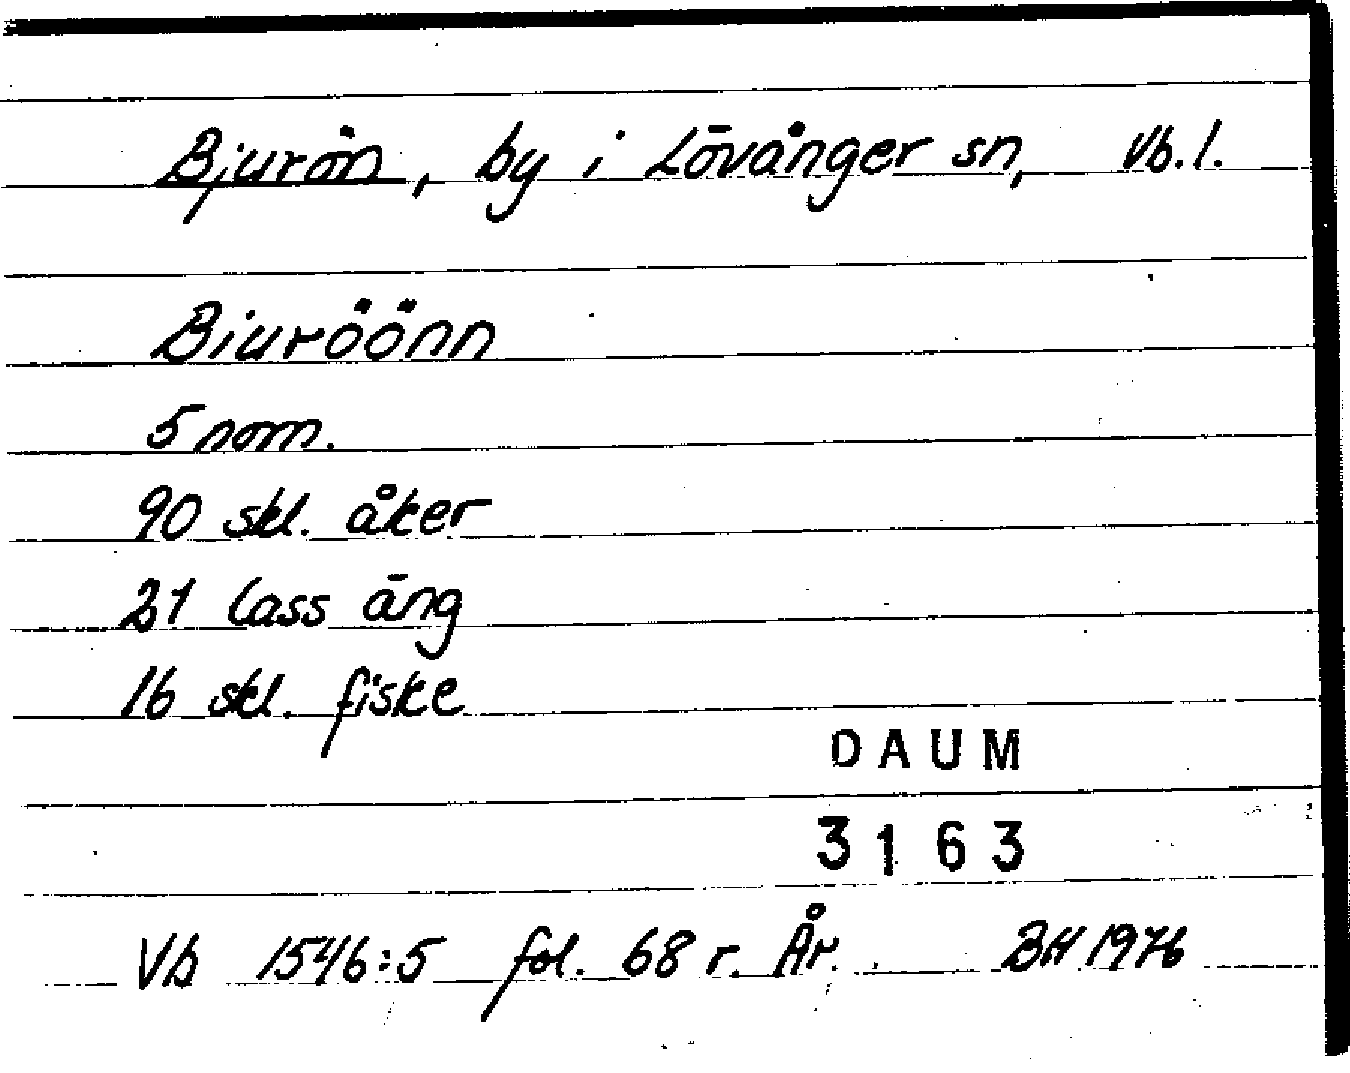 Bjurön, by i Lövånger sn, Vb. l.
Biuröönn
5 nom.
90 skl. åker
21 lass äng
16 skl. fiske
DAUM
3163
Vb 1546:5 fol. 68 r. År. BH 1976